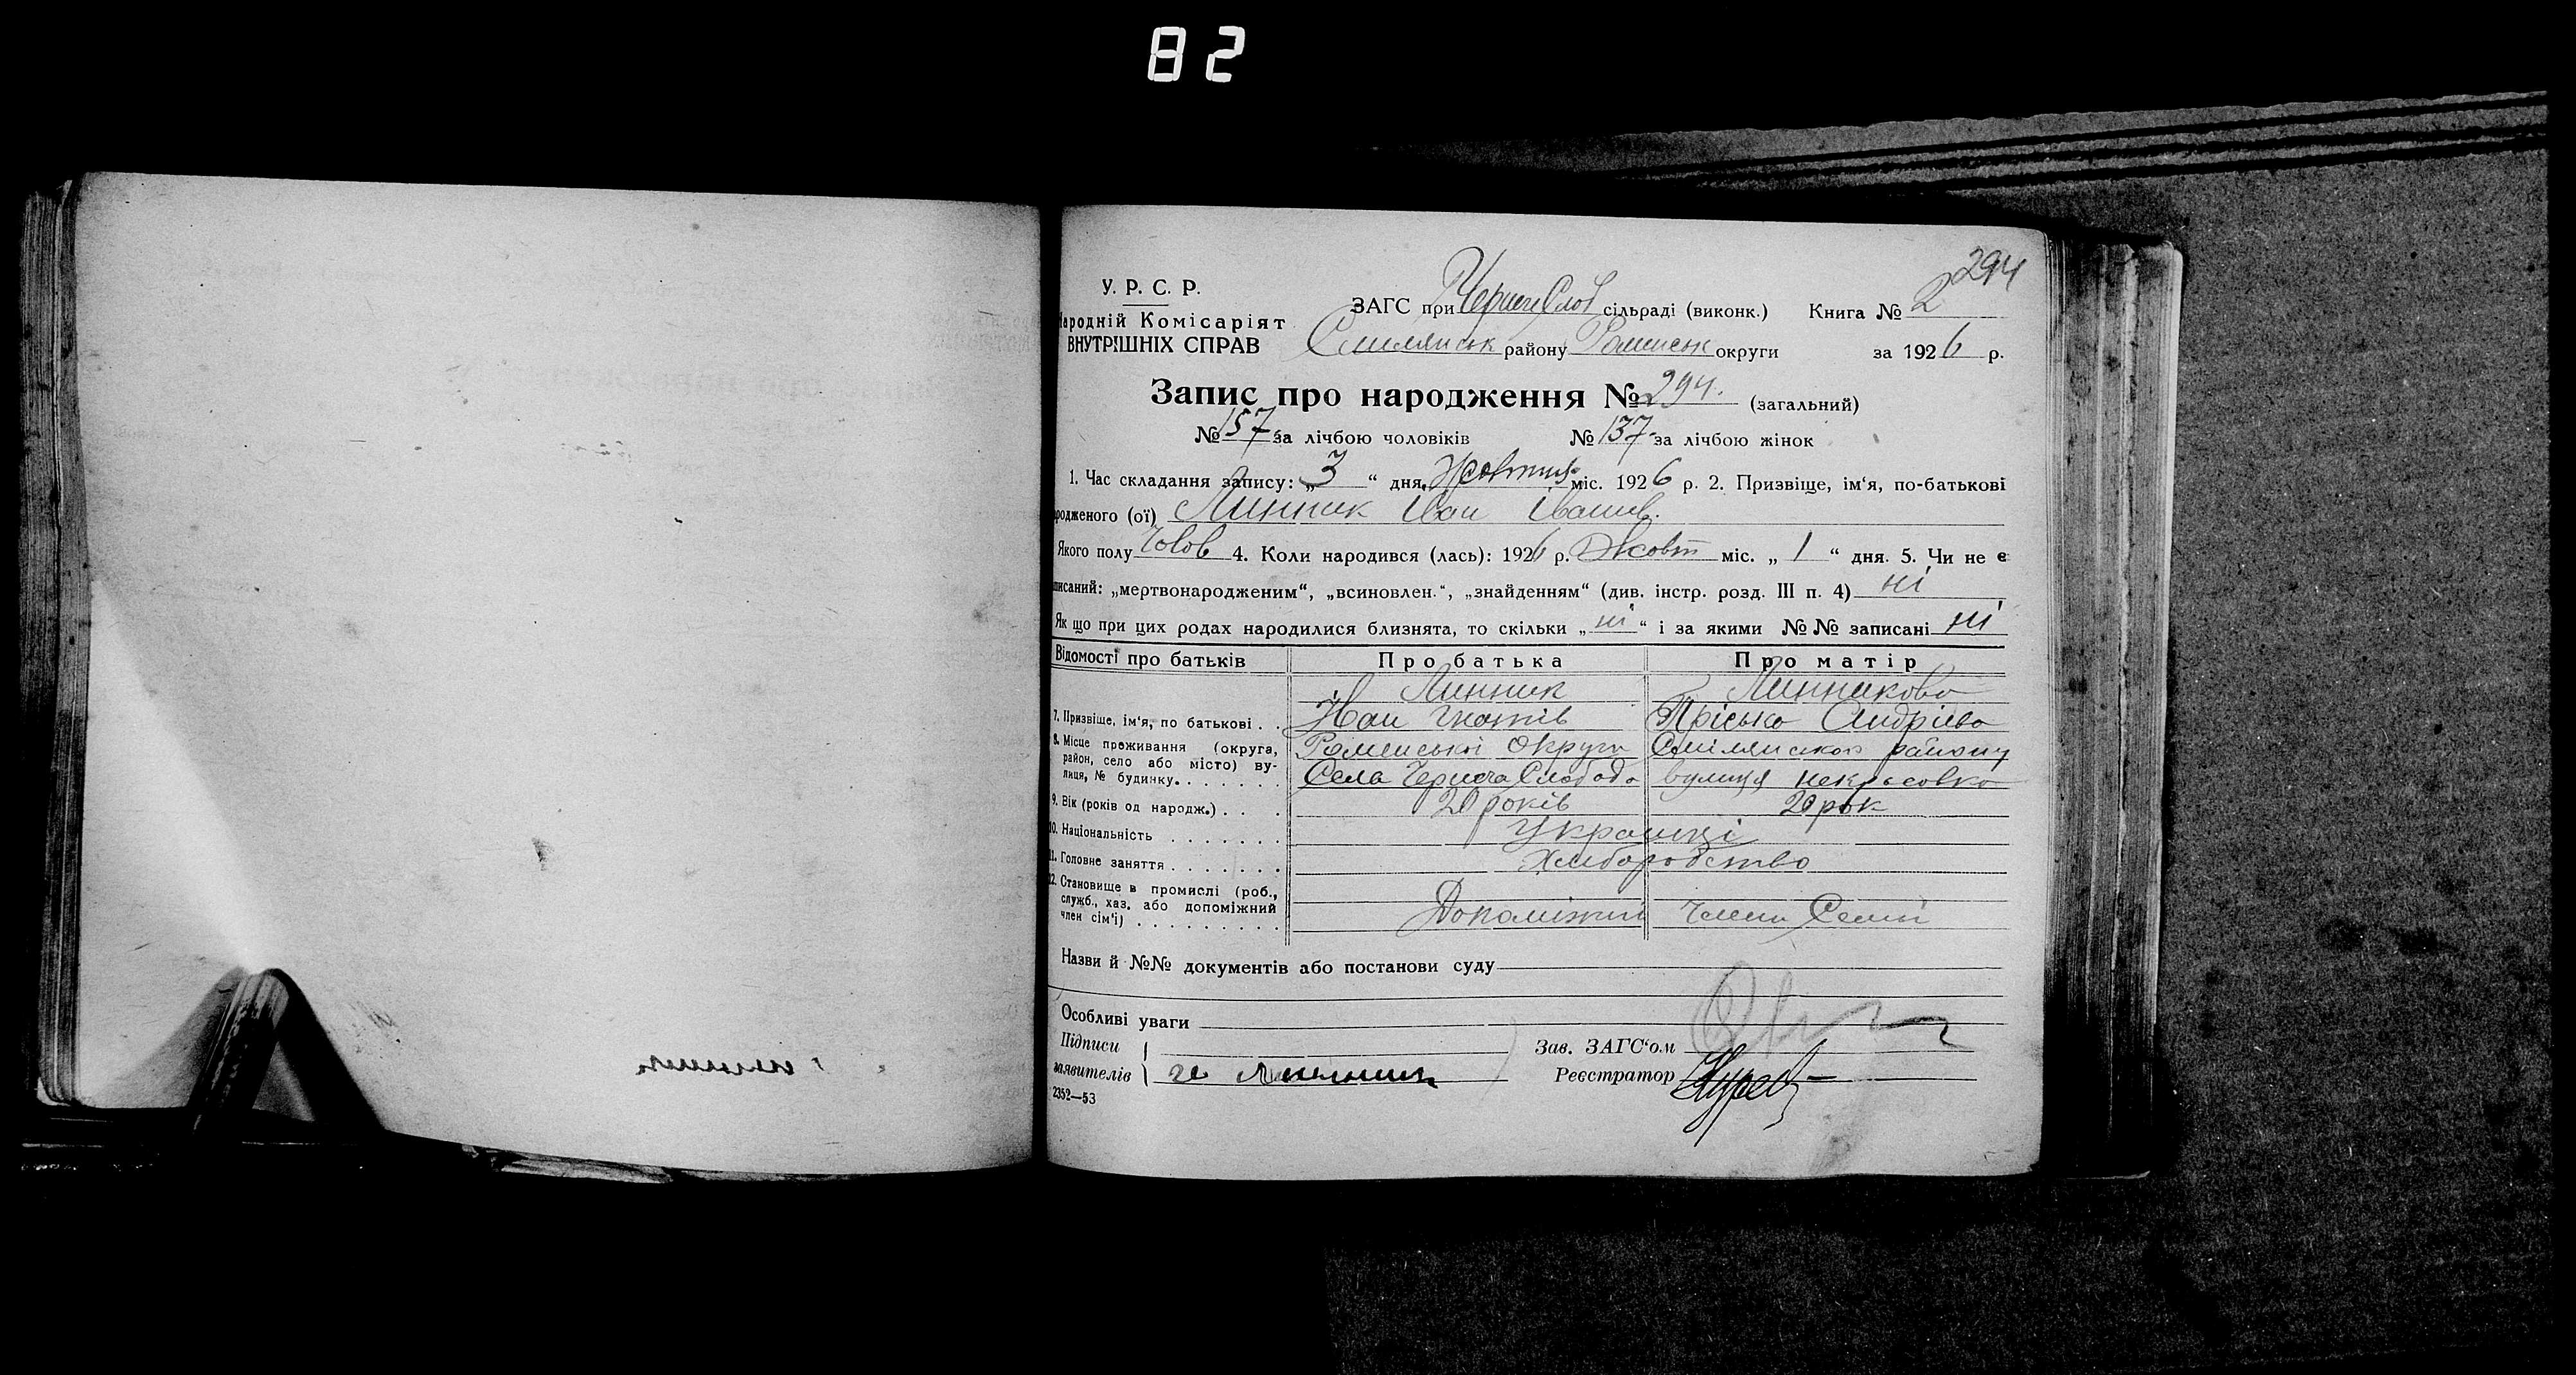 82
294
У. Р. С. Р.
Народній Комісаріят
ВНУТРІШНІХ СПРАВ
ЗАГС при Чернеч Слоб сільраді (виконк.) Книга № 2
Смілянськ району Роменськ округи за 1926 р.
Запис про народження № 294. (загальний)
№ 157 за лічбою чоловіків № 137 за лічбою жінок
1. Час складання запису: „ 3 “ дня Жовтня міс. 1926 р. 2. Призвіще, ім‘я, по-батькові
родженого (ої) Линник Іван Іванів.
Якого полу Чолов 4. Коли народився (лась): 1926 р. Жовт міс. „ 1 “ дня. 5. Чи не є
писаний: „мертвонародженим“, „всиновлен.“, „знайденням“ (див. інстр. розд. III п. 4) ні
Як що при цих родах народилися близнята, то скільки „ ні “ і за якими №№ записані ні
Відомості про батьків Про батька Про матір
Линник Линникова
7. Призвіще, ім‘я, по батькові . . Іван Гнатів Пріська Андріїва
8. Місце проживання (округа, район, село або місто) ву- лиця, № будинку. Роменської Округи Смілянського району
Села Чернеча Слобода вулиця некрасовка
9. Вік (років од народж.) . . . 20 років 20 рок
10. Національність Українці
11. Головне заняття Хліборобство
12. Становище в промислі (роб.,
служб., хаз. або допоміжний
член сім‘ї) Допоміжні члени Семії
Назви й №№ документів або постанови суду
Особливі уваги
Підписи
заявителів
Зав. ЗАГС‘ом
Реєстратор
2352—53